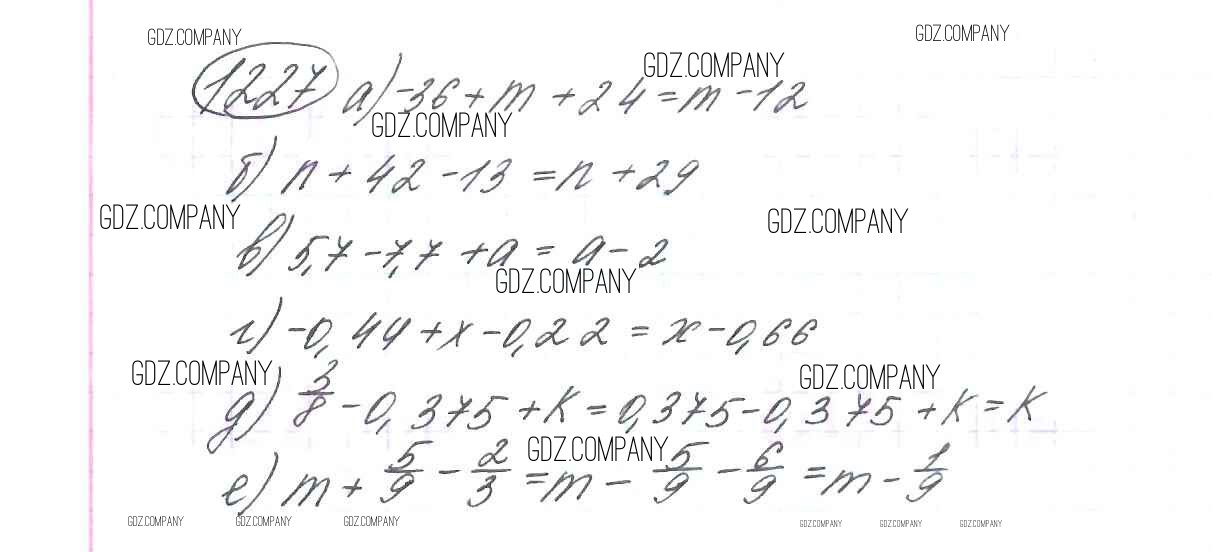 GDZ.COMPANY GDZ.COMPANY
1227 а) -36 + m + 24 = m - 12
GDZ.COMPANY
GDZ.COMPANY
б) n + 42 - 13 = n + 29
GDZ.COMPANY GDZ.COMPANY
в) 5,7 - 7,7 + a = a - 2
GDZ.COMPANY
г) -0,44 + x - 0,22 = x - 0,66
GDZ.COMPANY GDZ.COMPANY
д) 3/8 - 0,375 + K = 0,375 - 0,375 + K = K
GDZ.COMPANY
е) m + 5/9 - 2/3 = m - 5/9 - 6/9 = m - 1/9
GDZ.COMPANY GDZ.COMPANY GDZ.COMPANY GDZ.COMPANY GDZ.COMPANY GDZ.COMPANY